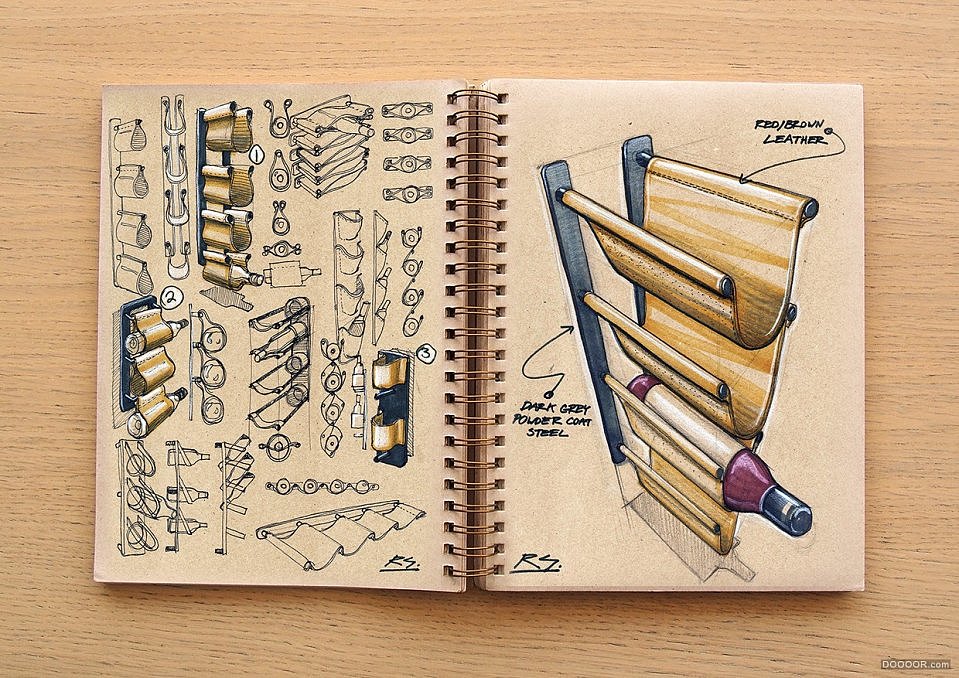 1
2
3
RS.
RED/BROWN
LEATHER
DARK GREY
POWDER COAT
STEEL
RS.
DOOOOR.com